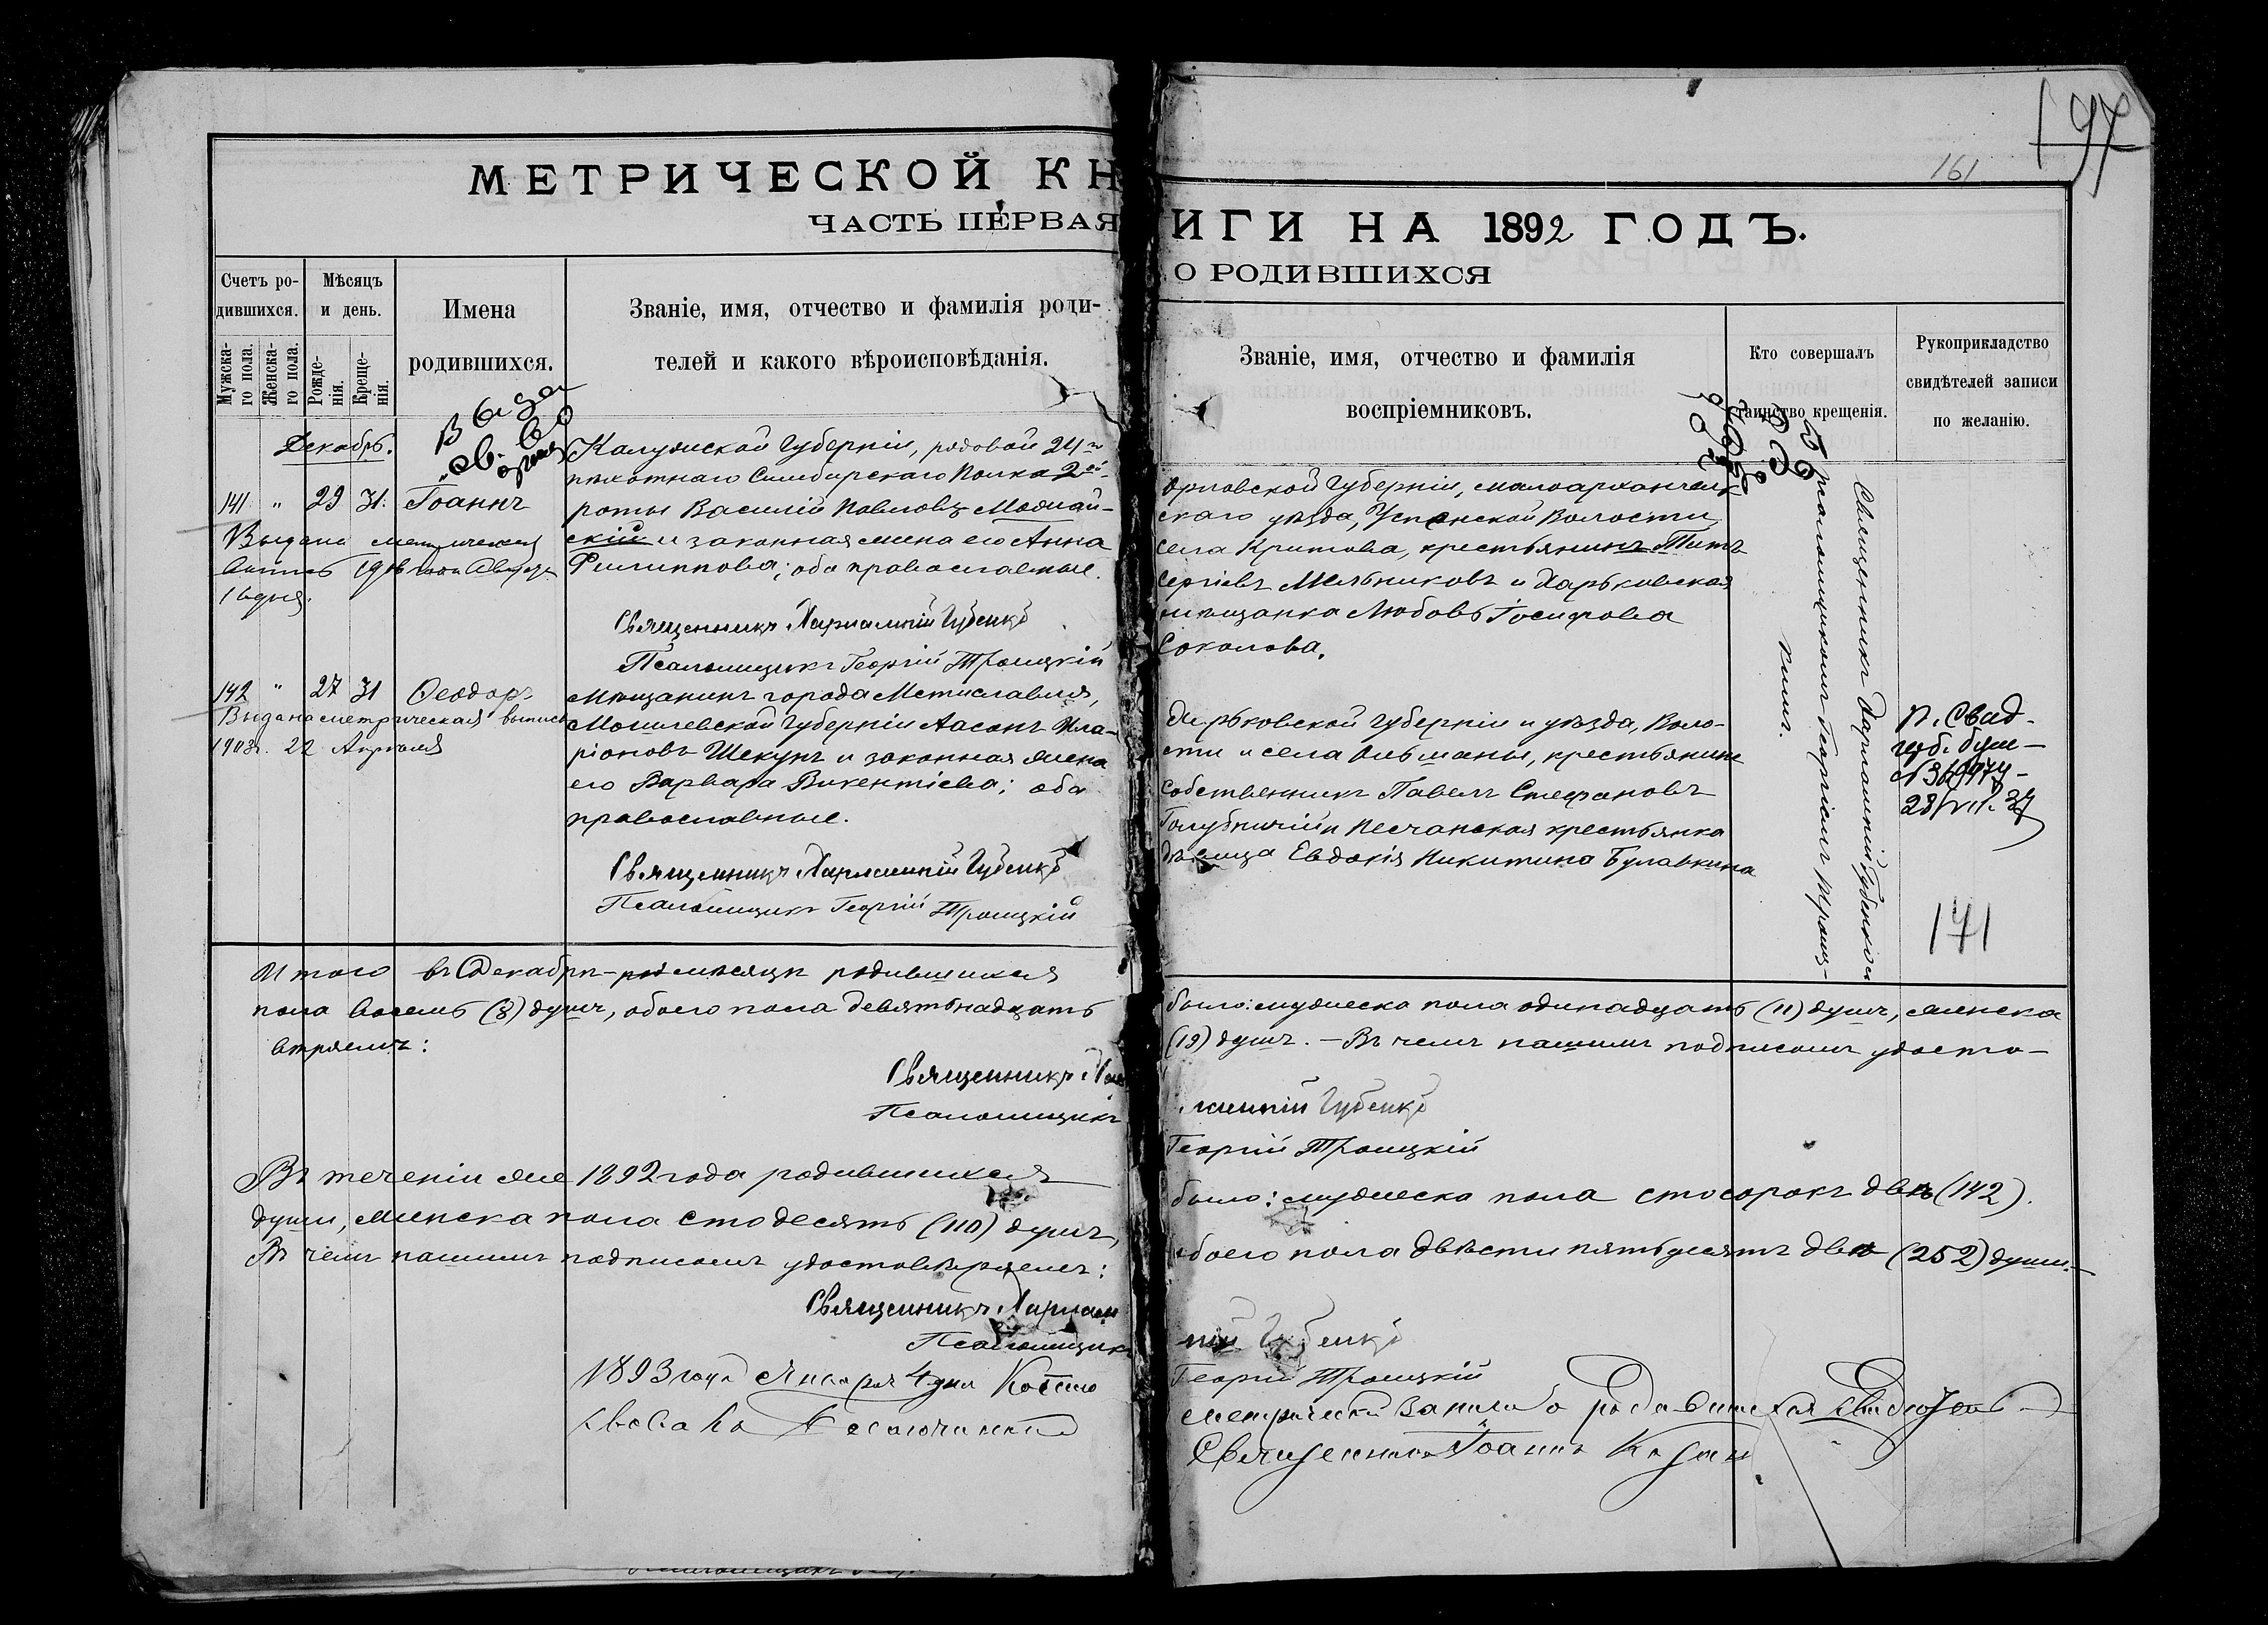 197
161
МЕТРИЧЕСКОЙ КНИГИ НА 1892 ГОДЪ.
ЧАСТЬ ПЕРВАЯ О РОДИВШИХСЯ
Счетъ родившихся.
Мужскаго пола.
Женскаго пола.
Мѣсяцъ и день.
Рожденія.
Крещенія.
Имена родившихся.
Званіе, имя, отчество и фамилія роди-
телей и какого вѣроисповѣданія.
Званіе, имя, отчество и фамилія
воспріемниковъ.
Кто совершалъ
таинство крещенія.
Рукоприкладство
свидѣтелей записи
по желанію.
Декабрь.
141 " 29 31. Іоаннъ
Выдана метрическая
выпись 1906 года
Калужской Губерніи, рядовой 24го
пѣхотнаго Симбирскаго Полка 2ой
роты Василій Павловъ Можай-
скій и законная жена его Анна
Филиппова; оба православные.
Священникъ Харлампій Губенко
Псаломщикъ Георгій Троицкій
Орловской Губерніи, малоархангель-
скаго уѣзда, Успенской Волости,
села Критова, крестьянинъ Титъ
Сергіевъ Мельниковъ и Харьковская
мѣщанка Любовь Іосифова
Соколова.
Священникъ Харлампій Губенко съ
псаломщикомъ Георгіемъ Троиц-
кимъ.
142 " 27 31 Ѳеодоръ
Выдана метрическая выпись
1903г. 22 Апрѣля
Мѣщанинъ города Мстиславля,
Могилевской Губерніи Іасонъ Ила-
ріоновъ Шекунъ и законная жена
его Варвара Викентіева; оба
православные.
Священникъ Харлампій Губенко
Псаломщикъ Георгій Троицкій
Харьковской губерніи и уѣзда, Воло-
сти и села Ольшаны, крестьянинъ
собственникъ Павелъ Стефановъ
Голубничій и Песчанская крестьянка
дѣвица Евдокія Никитина Булавкина
141
Итого въ Декабрѣ мѣсяцѣ родившихся было: мужеска пола одинадцать (11) душъ, женска
пола восемь (8) душъ, обоего пола девятьнадцать (19) душъ. – Въ чемъ нашимъ подписомъ удосто-
вѣряемъ:
Священникъ Харлампій Губенко
Псаломщикъ Георгій Троицкій
Въ теченіи же 1892 года родившихся было: мужеска пола сто сорокъ двѣ (142)
души, женска пола сто десять (110) душъ, обоего пола двѣсти пятьдесятъ двѣ (252) души.–
Въ чемъ нашимъ подписомъ удостовѣряемъ:
Священникъ Харлампій Губенко
Псаломщикъ Георгій Троицкій
1893 года Января 4 дня
Священникъ Іоаннъ